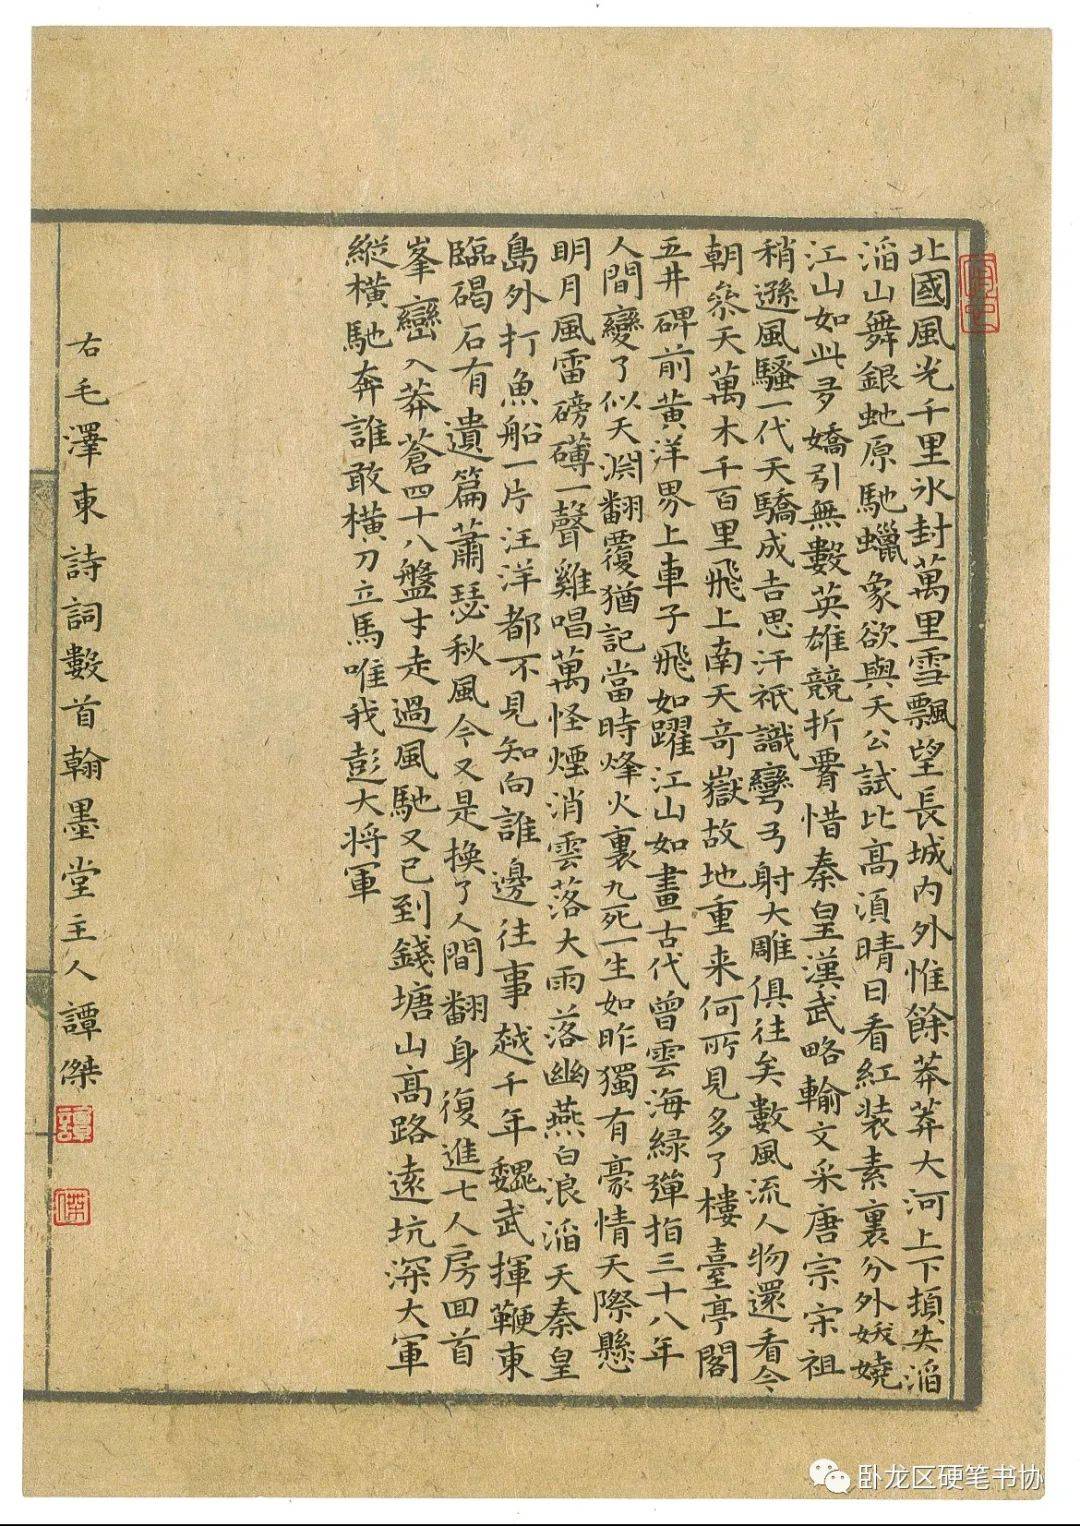 北國風光千里冰封萬里雪飄望長城内外惟餘莽莽大河上下頓失滔
滔山舞銀虵原馳蠟象欲與天公試比高湏晴日看紅装素裏分外娥嬈
江山如此多嬌引無數英雄競折署惜秦皇漢武略輸文采唐宗宋祖
稍遜風騷一代天驕成吉思汗祇識彎弓射大雕俱往矣數風流人物還看今
朝叅天萬木千百里飛上南天竒嶽故地重来何所見多了樓臺亭閣
五井碑前黄洋界上車子飛如躍江山如畫古代曾雲海緑彈指三十八年
人間變了似天淵翻覆猶記當時烽火裏九死一生如昨獨有豪情天際懸
明月風雷磅礴一聲雞唱萬怪煙消雲落大雨落幽燕白浪滔天秦皇
島外打魚船一片汪洋都不見知向誰邊往事越千年魏武揮鞭東
臨碣石有遺篇蕭瑟秋風今又是換了人間翻身復進七人房回首
峯巒入莽蒼四十八盤才走過風馳又已到錢塘山高路遠坑深大軍
縱橫馳奔誰敢橫刀立馬唯我彭大将軍
右毛澤東詩詞數首翰墨堂主人譚傑
譚
傑
卧龙区硬笔书协